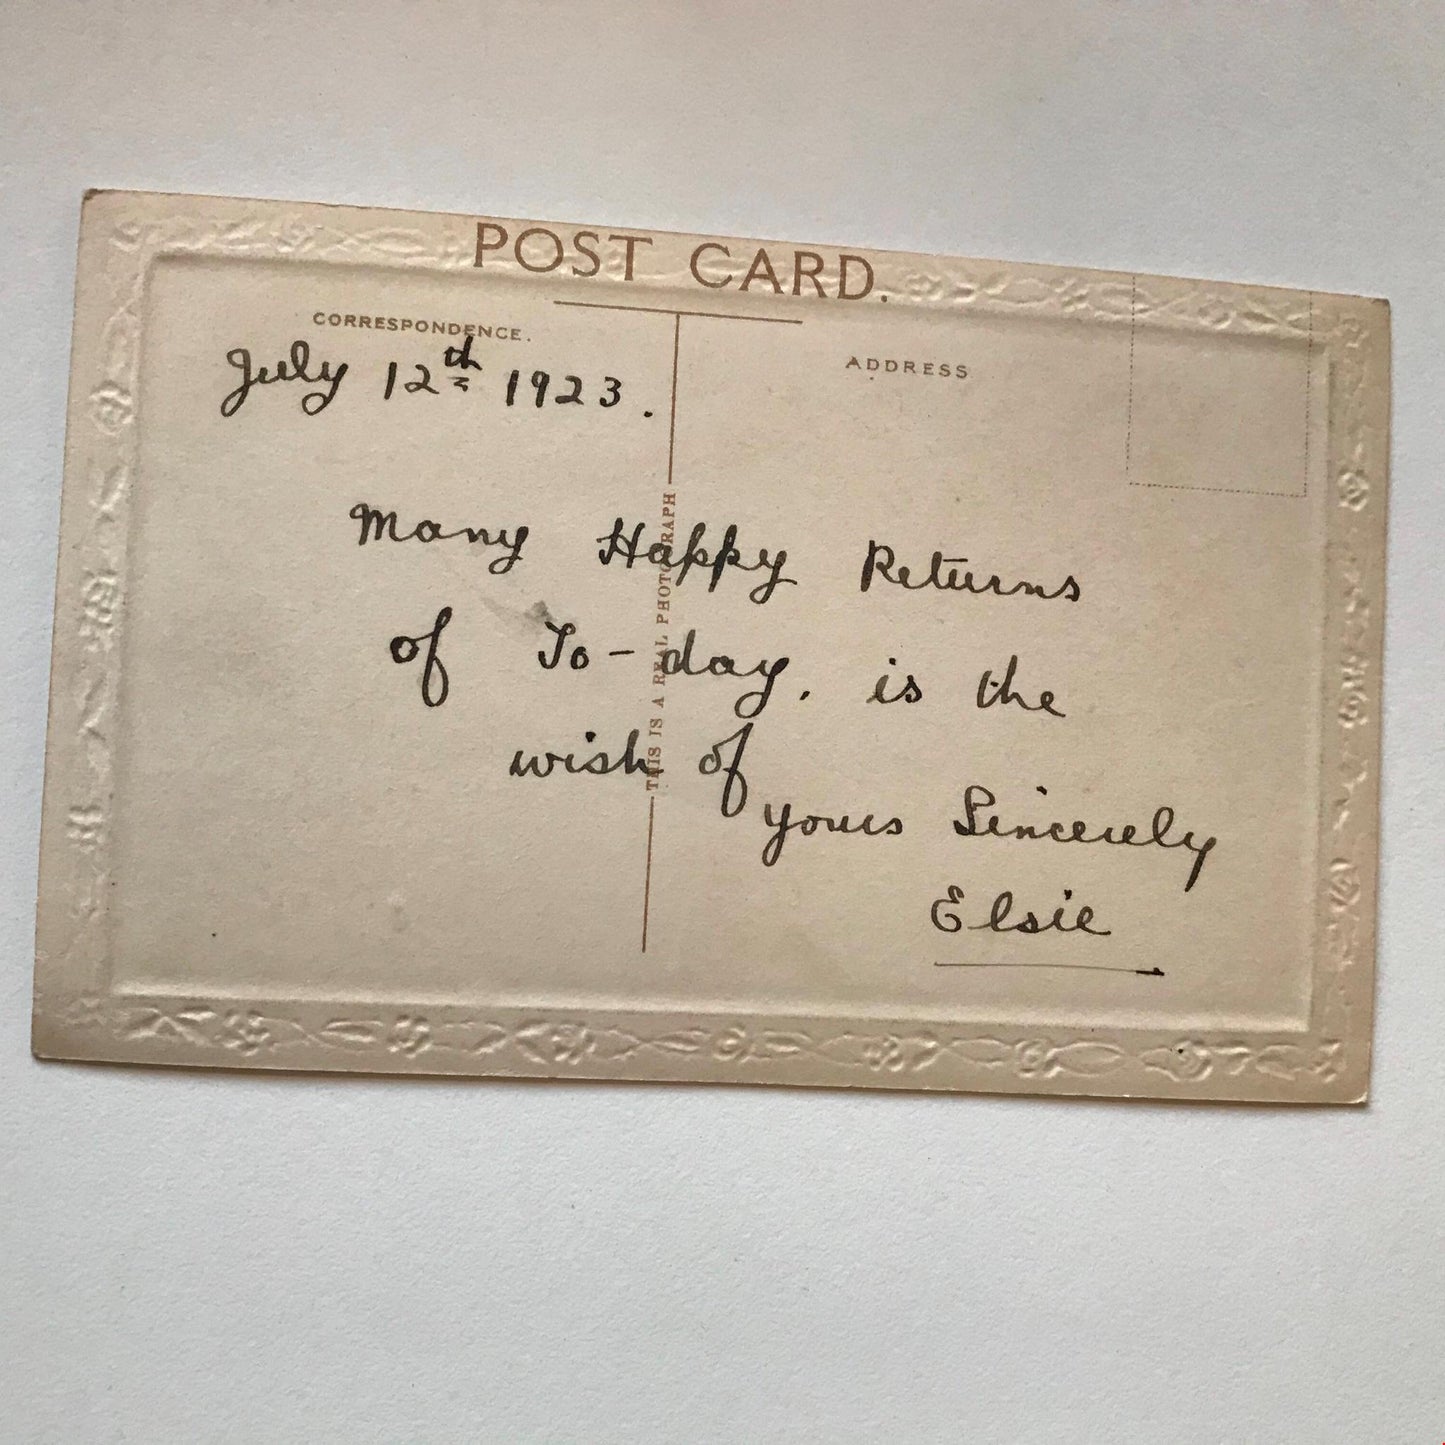 POST CARD.
CORRESPONDENCE.
ADDRESS
July 12th 1923.
Many Happy Returns
of To-day. is the
wish of
yours Sincerely
Elsie
THIS IS A REAL PHOTOGRAPH